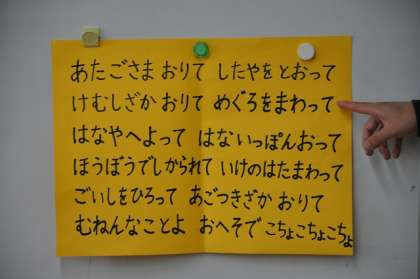 あたごさま おりて したやをとおって
けむしざか おりて めぐろをまわって
はなやへよって はないっぽんおって
ほうぼうでしかられて いけのはたまわって
ごいしをひろって あごつきざか おりて
むねんなことよ おへそで こちょこちょこちょ